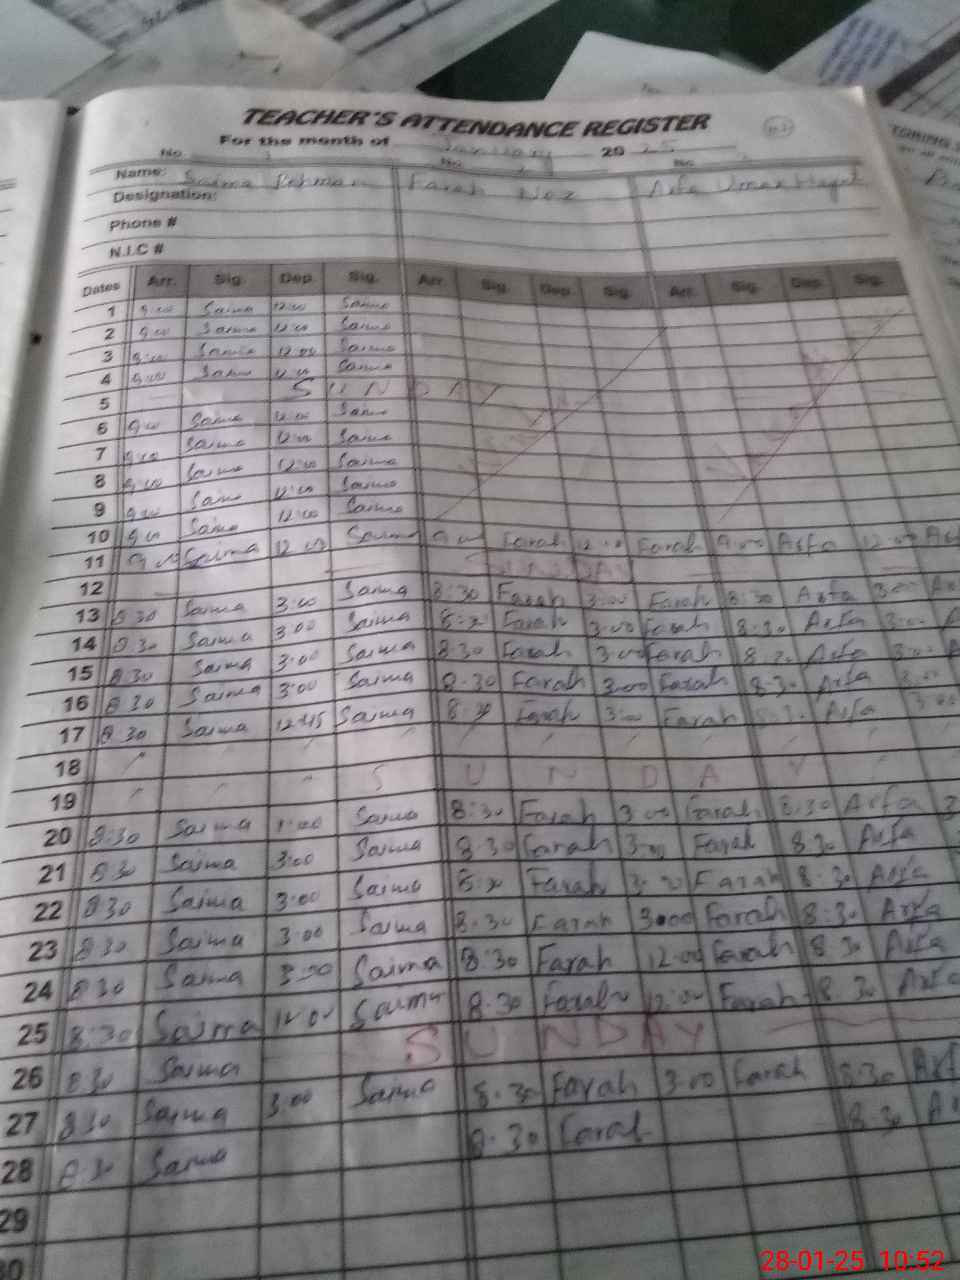 TEACHER'S ATTENDANCE REGISTER
For the month of January 2025
No. No. No.
Name: Saima Rehman Farah Naz Arfa Umar Hayat
Designation:
Phone #
N.I.C #
Dates Arr. Sig. Dep. Sig. Arr. Sig. Dep. Sig. Arr. Sig. Dep. Sig.
1 9:00 Saima 12:00 Saima
2 9:00 Saima 12:00 Saima
3 9:00 Saima 12:00 Saima
4 9:00 Saima 12:00 Saima
5 SUNDAY
6 9:00 Saima 12:00 Saima
7 9:00 Saima 12:00 Saima
8 9:00 Saima 12:00 Saima
9 9:00 Saima 12:00 Saima
10 9:00 Saima 12:00 Saima
11 9:00 Saima 12:00 Saima 9:00 Farah 12:00 Farah 9:00 Arfa 12:00
12 SUNDAY
13 8:30 Saima 3:00 Saima 8:30 Farah 3:00 Farah 8:30 Arfa 3:00
14 8:30 Saima 3:00 Saima 8:30 Farah 3:00 Farah 8:30 Arfa 3:00
15 8:30 Saima 3:00 Saima 8:30 Farah 3:00 Farah 8:30 Arfa 3:00
16 8:30 Saima 3:00 Saima 8:30 Farah 3:00 Farah 8:30 Arfa 3:00
17 8:30 Saima 12:45 Saima 8:30 Farah 3:00 Farah 8:30 Arfa 3:00
18
19 SUNDAY
20 8:30 Saima Saima 8:30 Farah 3:00 Farah 8:30 Arfa
21 8:30 Saima 3:00 Saima 8:30 Farah 3:00 Farah 8:30 Arfa
22 8:30 Saima 3:00 Saima 8:30 Farah 3:00 Farah 8:30 Arfa
23 8:30 Saima 3:00 Saima 8:30 Farah 3:00 Farah 8:30 Arfa
24 8:30 Saima 3:00 Saima 8:30 Farah 12:00 Farah 8:30 Arfa
25 8:30 Saima 12:00 Saima 8:30 Farah 12:00 Farah 8:30 Arfa
26 8:30 Saima SUNDAY
27 8:30 Saima 3:00 Saima 8:30 Farah 3:00 Farah 8:30
28 8:30 Saima 8:30 Farah 8:30
29
28-01-25 10:52